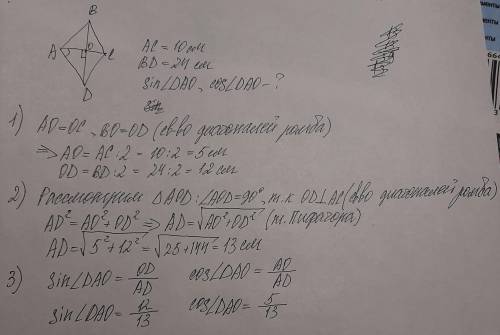 B
A
O
C
D
AC = 10 см
BD = 24 см
sin∠DAO, cos∠DAO – ?
1) AO = OC, BO = OD (св-во диагоналей ромба)
⇒ AO = AC : 2 = 10 : 2 = 5 см
OD = BD : 2 = 24 : 2 = 12 см
2) Рассмотрим △AOD: ∠AOD = 90°, т.к. OD⊥AC (св-во диагоналей ромба)
AD² = AO² + OD² ⇒ AD = √AO² + OD² (т. Пифагора)
AD = √5² + 12² = √25 + 144 = 13 см
3) sin∠DAO = OD/AD cos∠DAO = AO/AD
sin∠DAO = 12/13 cos∠DAO = 5/13